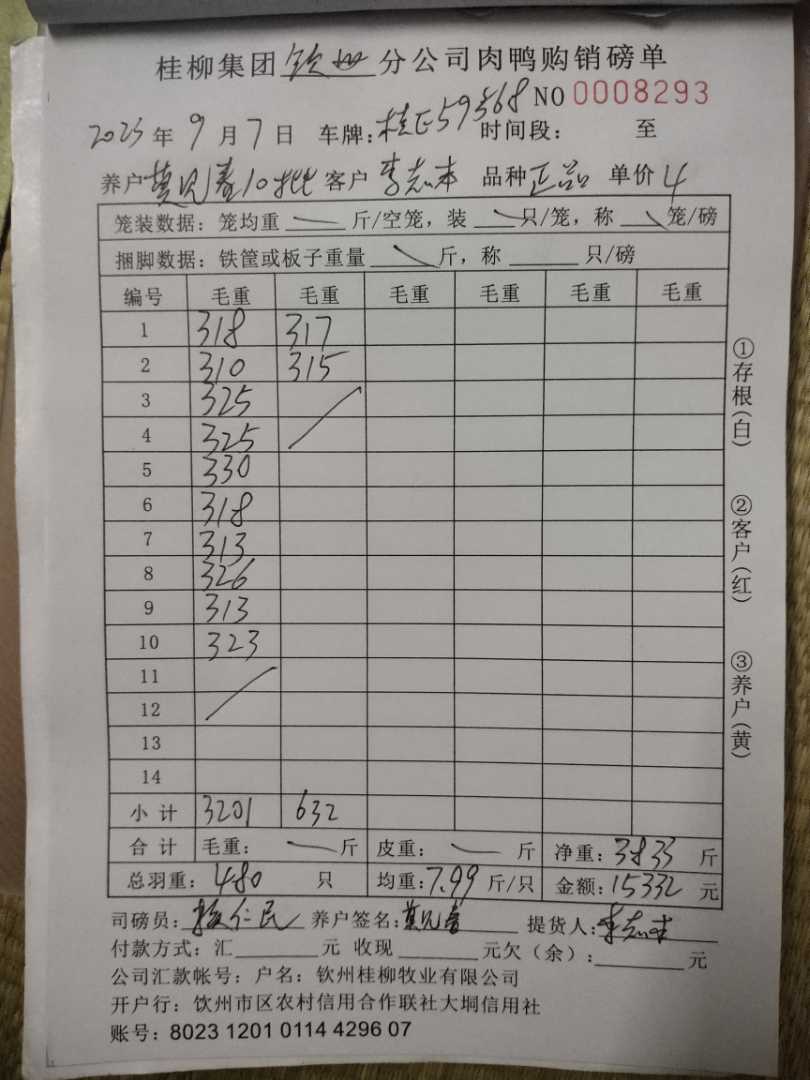 桂柳集团钦州分公司肉鸭购销磅单
NO 0008293
2023年9月7日 车牌:桂E59368 时间段: 至
养户莫见春10批 客户李志本 品种正品 单价4
笼装数据: 笼均重 斤/空笼, 装 只/笼, 称 笼/磅
捆脚数据: 铁筐或板子重量 斤, 称 只/磅
编号 毛重 毛重 毛重 毛重 毛重 毛重
1 318 317
2 310 315
3 325
4 325
5 330
6 318
7 313
8 326
9 313
10 323
11
12
13
14
小计 3201 632
合计 毛重: 斤 皮重: 斤 净重:3833 斤
总羽重:480 只 均重:7.99斤/只 金额:15332元
司磅员: 仁民 养户签名:莫见春 提货人:李志本
付款方式: 汇 元 收现 元欠(余): 元
公司汇款帐号: 户名: 钦州桂柳牧业有限公司
开户行: 饮州市区农村信用合作联社大垌信用社
账号: 8023 1201 0114 4296 07
①存根(白)
②客户(红)
③养户(黄)